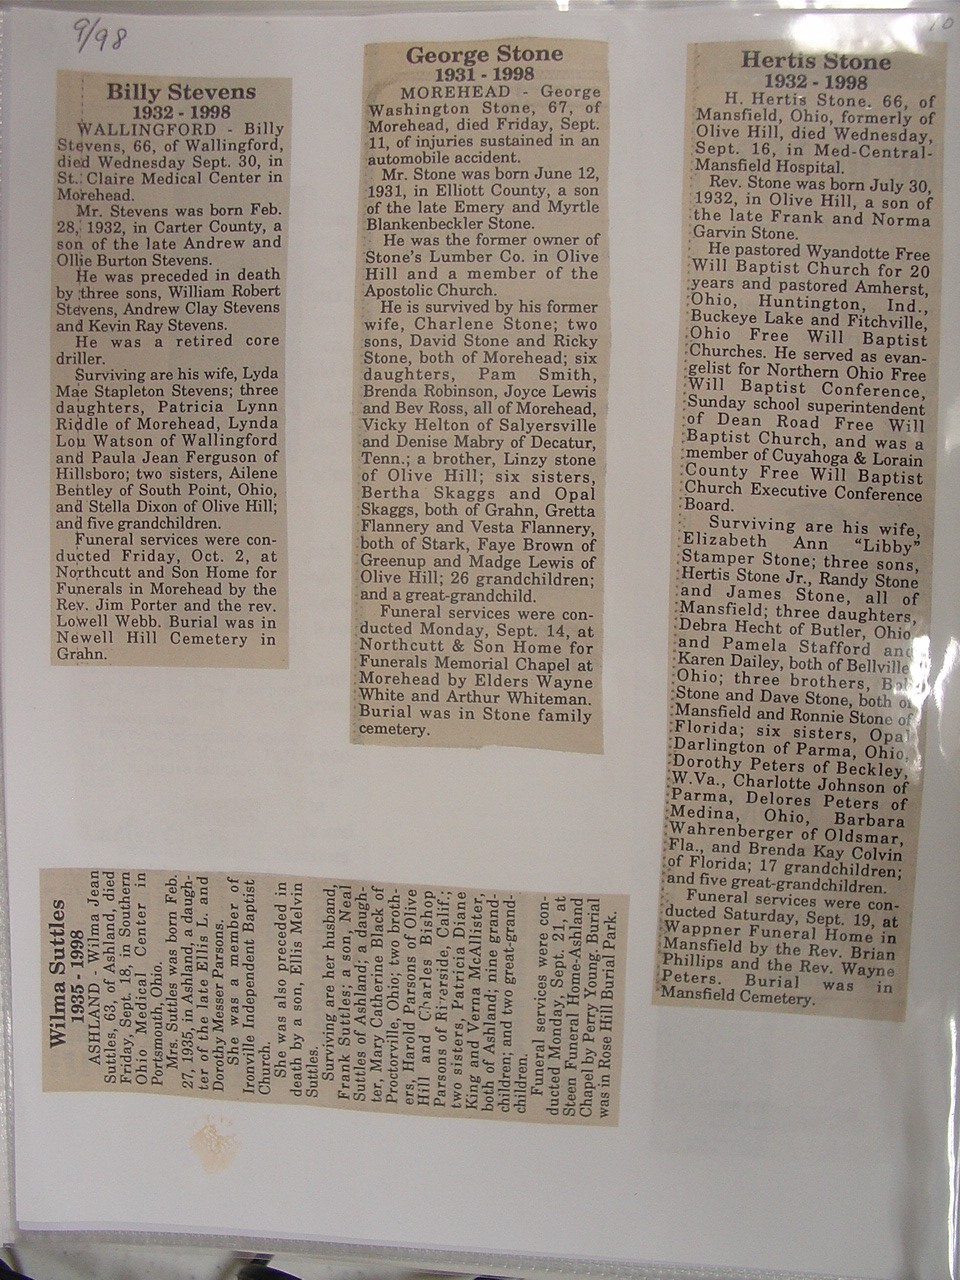 9/98
Billy Stevens
1932 - 1998
WALLINGFORD - Billy
Stevens, 66, of Wallingford,
died Wednesday Sept. 30, in
St. Claire Medical Center in
Morehead.
Mr. Stevens was born Feb.
28, 1932, in Carter County, a
son of the late Andrew and
Ollie Burton Stevens.
He was preceded in death
by three sons, William Robert
Stevens, Andrew Clay Stevens
and Kevin Ray Stevens.
He was a retired core
driller.
Surviving are his wife, Lyda
Mae Stapleton Stevens; three
daughters, Patricia Lynn
Riddle of Morehead, Lynda
Lou Watson of Wallingford
and Paula Jean Ferguson of
Hillsboro; two sisters, Ailene
Bentley of South Point, Ohio,
and Stella Dixon of Olive Hill;
and five grandchildren.
Funeral services were con-
ducted Friday, Oct. 2, at
Northcutt and Son Home for
Funerals in Morehead by the
Rev. Jim Porter and the rev.
Lowell Webb. Burial was in
Newell Hill Cemetery in
Grahn.
George Stone
1931 - 1998
MOREHEAD - George
Washington Stone, 67, of
Morehead, died Friday, Sept.
11, of injuries sustained in an
automobile accident.
Mr. Stone was born June 12,
1931, in Elliott County, a son
of the late Emery and Myrtle
Blankenbeckler Stone.
He was the former owner of
Stone's Lumber Co. in Olive
Hill and a member of the
Apostolic Church.
He is survived by his former
wife, Charlene Stone; two
sons, David Stone and Ricky
Stone, both of Morehead; six
daughters, Pam Smith,
Brenda Robinson, Joyce Lewis
and Bev Ross, all of Morehead,
Vicky Helton of Salyersville
and Denise Mabry of Decatur,
Tenn.; a brother, Linzy stone
of Olive Hill; six sisters,
Bertha Skaggs and Opal
Skaggs, both of Grahn, Gretta
Flannery and Vesta Flannery,
both of Stark, Faye Brown of
Greenup and Madge Lewis of
Olive Hill; 26 grandchildren;
and a great-grandchild.
Funeral services were con-
ducted Monday, Sept. 14, at
Northcutt & Son Home for
Funerals Memorial Chapel at
Morehead by Elders Wayne
White and Arthur Whiteman.
Burial was in Stone family
cemetery.
Hertis Stone
1932 - 1998
H. Hertis Stone. 66, of
Mansfield, Ohio, formerly of
Olive Hill, died Wednesday,
Sept. 16, in Med-Central-
Mansfield Hospital.
Rev. Stone was born July 30,
1932, in Olive Hill, a son of
the late Frank and Norma
Garvin Stone.
He pastored Wyandotte Free
Will Baptist Church for 20
years and pastored Amherst,
Ohio, Huntington, Ind.,
Buckeye Lake and Fitchville,
Ohio Free Will Baptist
Churches. He served as evan-
gelist for Northern Ohio Free
Will Baptist Conference,
Sunday school superintendent
of Dean Road Free Will
Baptist Church, and was a
member of Cuyahoga & Lorain
County Free Will Baptist
Church Executive Conference
Board.
Surviving are his wife,
Elizabeth Ann "Libby"
Stamper Stone; three sons,
Hertis Stone Jr., Randy Stone
and James Stone, all of
Mansfield; three daughters,
Debra Hecht of Butler, Ohio
and Pamela Stafford and
Karen Dailey, both of Bellville
Ohio; three brothers,
Stone and Dave Stone, both of
Mansfield and Ronnie Stone of
Florida; six sisters, Opal
Darlington of Parma, Ohio,
Dorothy Peters of Beckley,
W.Va., Charlotte Johnson of
Parma, Delores Peters of
Medina, Ohio, Barbara
Wahrenberger of Oldsmar,
Fla., and Brenda Kay Colvin
of Florida; 17 grandchildren;
and five great-grandchildren.
Funeral services were con-
ducted Saturday, Sept. 19, at
Wappner Funeral Home in
Mansfield by the Rev. Brian
Phillips and the Rev. Wayne
Peters. Burial was in
Mansfield Cemetery.
Wilma Suttles
1935 - 1998
ASHLAND - Wilma Jean
Suttles, 63, of Ashland, died
Friday, Sept. 18, in Southern
Ohio Medical Center in
Portsmouth, Ohio.
Mrs. Suttles was born Feb.
27, 1935, in Ashland, a daugh-
ter of the late Ellis L. and
Dorothy Messer Parsons.
She was a member of
Ironville Independent Baptist
Church.
She was also preceded in
death by a son, Ellis Melvin
Suttles.
Surviving are her husband,
Frank Suttles; a son, Neal
Suttles of Ashland; a daugh-
ter, Mary Catherine Black of
Proctorville, Ohio; two broth-
ers, Harold Parsons of Olive
Hill and Charles Bishop
Parsons of Riverside, Calif.;
two sisters, Patricia Diane
King and Verna McAllister,
both of Ashland; nine grand-
children; and two great-grand-
children.
Funeral services were con-
ducted Monday, Sept. 21, at
Steen Funeral Home-Ashland
Chapel by Perry Young. Burial
was in Rose Hill Burial Park.